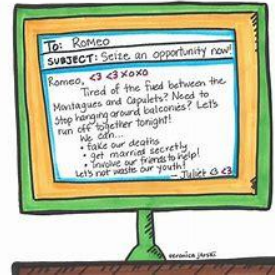 To: Romeo
SUBJECT: Seize an opportunity now!
Romeo, <3 <3 xoxo
Tired of the fued between the
Montagues and Capulets? Need to
stop hanging around balconies? Let's
run off together tonight!
We can...
• fake our deaths
• get married secretly
• involve our friends to help!
Let's not waste our youth!
- Juliet <3 <3
veronica jarski